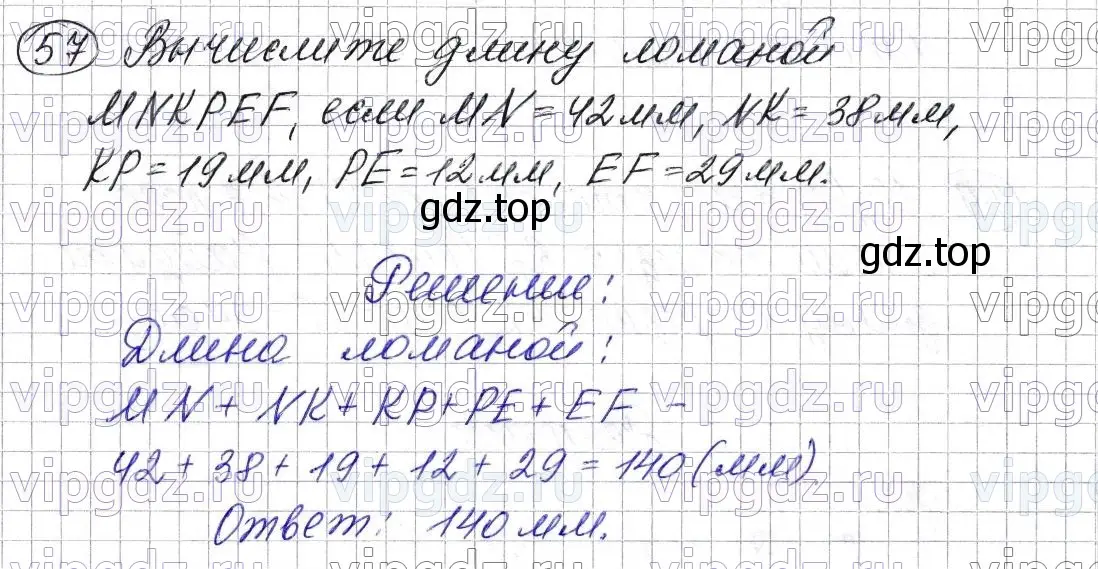 57 Вычислите длину ломаной
MNKPEF, если MN = 42 мм, NK = 38 мм,
KP = 19 мм, PE = 12 мм, EF = 29 мм.
gdz.top
gdz.top
Решение:
Длина ломаной:
MN + NK + KP + PE + EF =
42 + 38 + 19 + 12 + 29 = 140 (мм)
Ответ: 140 мм.
vipgdz.ru